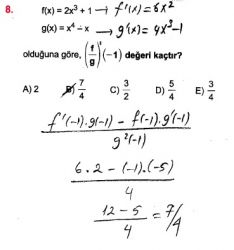 8. f(x) = 2x³ + 1 → f'(x) = 6x²
g(x) = x⁴ - x → g'(x) = 4x³-1
olduğuna göre, (f/g)'(-1) değeri kaçtır?
A) 2 B) 7/4 C) 3/2 D) 5/4 E) 3/4
f'(-1).g(-1) - f(-1).g'(-1)
g²(-1)
6.2 - (-1).(-5)
4
12-5/4 = 7/4